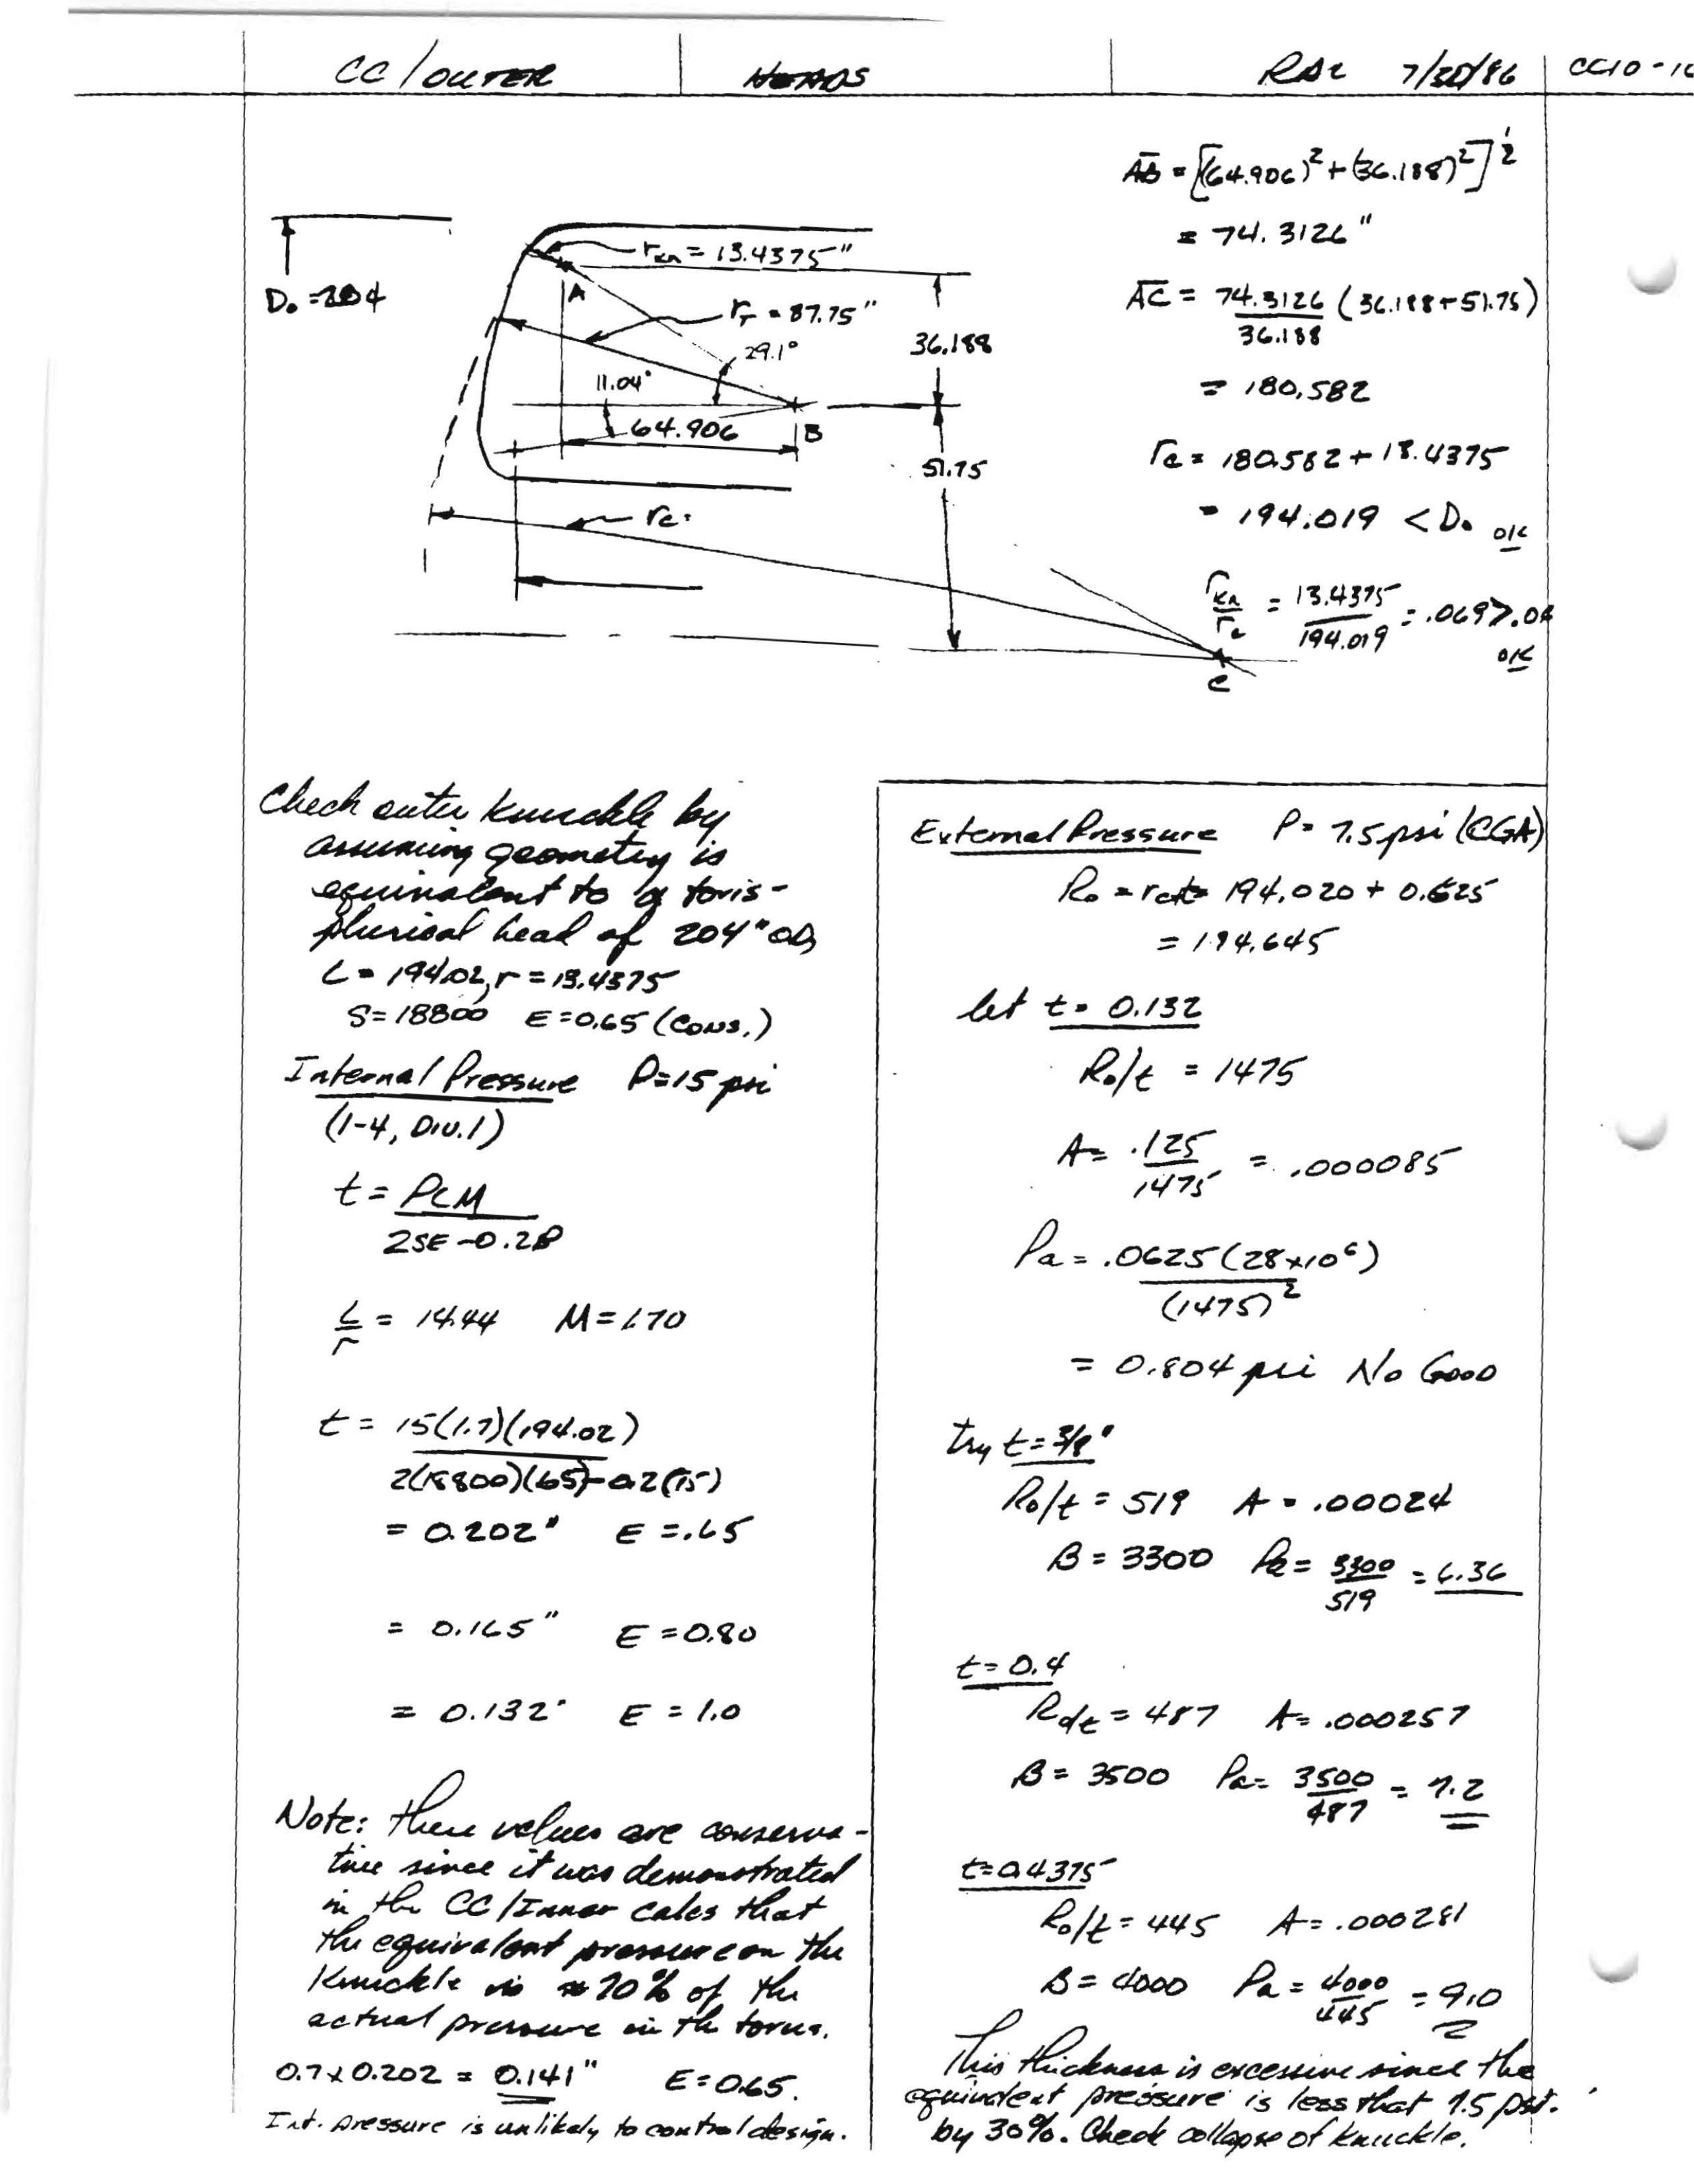 CC/OUTER HEADS RDL 7/30/86 CC10-10
D₀ = 204
r_kn = 13.4375"
A
r_T = 87.75"
29.1°
36.188
11.04°
64.906
B
51.75
r_c =
C
AB = [(64.906)² + (36.188)²]^½
= 74.3126"
AC = 74.3126/36.188 (36.188+51.75)
= 180.582
r_c = 180.582 + 13.4375
= 194.019 < D₀ OK
r_kn/r_c = 13.4375/194.019 = .069 > .06
OK
Check outer knuckle by
assuming geometry is
equivalent to a toris-
pherical head of 204" OD,
L = 194.02, r = 13.4375
S = 18800 E = 0.65 (CONS.)
Internal Pressure P = 15 psi
(1-4, Div. 1)
t = PLM / 2SE - 0.2P
L/r = 14.44 M = 1.70
t = 15(1.7)(194.02) / 2(18800)(.65) - 0.2(15)
= 0.202" E = .65
= 0.165" E = 0.80
= 0.132" E = 1.0
Note: These values are conserva-
tive since it was demonstrated
in the CC/Inner calcs that
the equivalent pressure on the
Knuckle is ≈ 70% of the
actual pressure in the torus.
0.7 x 0.202 = 0.141" E = 0.65.
Int. pressure is unlikely to control design.
External Pressure P = 7.5 psi (CGA)
R₀ = r_c+t = 194.020 + 0.625
= 194.645
let t = 0.132
R₀/t = 1475
A = .125/1475 = .000085
Pa = .0625(28x10⁶) / (1475)²
= 0.804 psi No Good
try t = 3/8"
R₀/t = 519 A = .00024
B = 3300 Pa = 3300/519 = 6.36
t = 0.4
R₀/t = 487 A = .000257
B = 3500 Pa = 3500/487 = 7.2
t = 0.4375
R₀/t = 445 A = .000281
B = 4000 Pa = 4000/445 = 9.0
This thickness is excessive since the
equivalent pressure is less that 7.5 psi.
by 30%. Check collapse of knuckle.